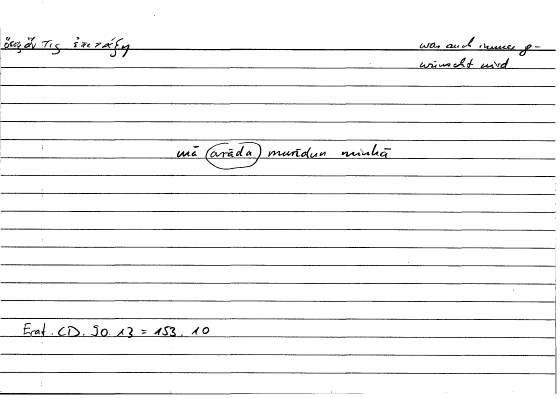 ὅσας ἄν τις ἐπιτάξῃ
was auch immer ge-
wünscht wird
mā arāda murīdun minhā
Erat. CD. 90.13 = 153.10